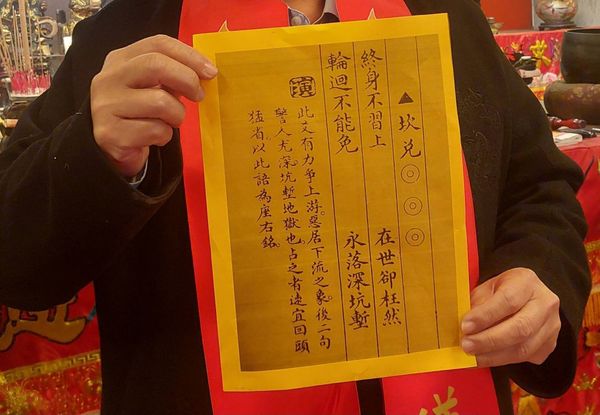 ▲坎兌◎◎◎
終身不習上　在世卻枉然
輪迴不能免　永落深坑塹
演
此文有力爭上游。惡居下流之象。後二句
警人尤深。坑塹地獄也。占之者速宜回頭
猛省。以此語為座右銘。